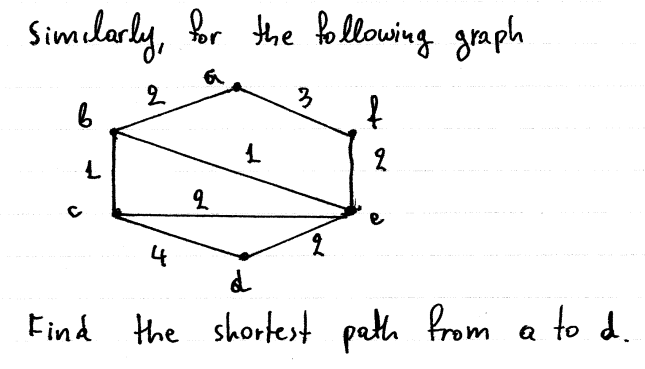 Similarly, for the following graph
a
2
3
b
f
1
1
2
c
2
e
4
2
d
Find the shortest path from a to d.